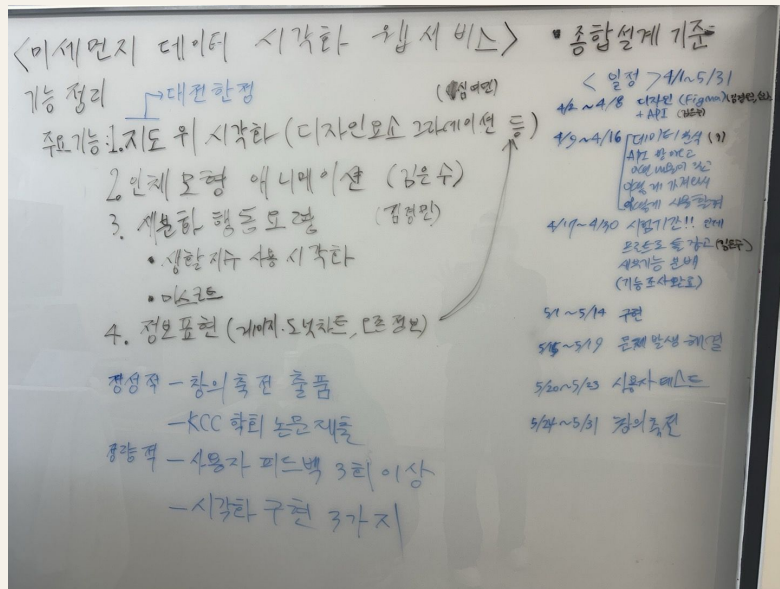 <미세먼지 데이터 시각화 웹서비스>
기능 정리
→대전한정
(심여민)
주요기능:1.지도 위 시각화 (디자인요소 그라데이션 등)
2. 인체 모형 애니메이션 (김은수)
3. 세분화 행동요령 (김정민)
• 생활지수 사용 시각화
• 마스코트
4. 정보표현 (게이지·도넛차트, 오존 정보)
정성적 - 창의축전 출품
- KCC 학회 논문제출
정량적 - 사용자 피드백 3회 이상
- 시각화 구현 3가지
• 종합설계 기준
<일정> 4/1~5/31
4/2~4/8 디자인 (Figma)
+ API
4/9~4/16 데이터 분석
API
4/17~4/30 시험기간!!
세부기능 분배
(기능조사완료)
5/1~5/14 구현
5/15~5/19 문제 발생·해결
5/20~5/23 사용자 테스트
5/24~5/31 창의축전